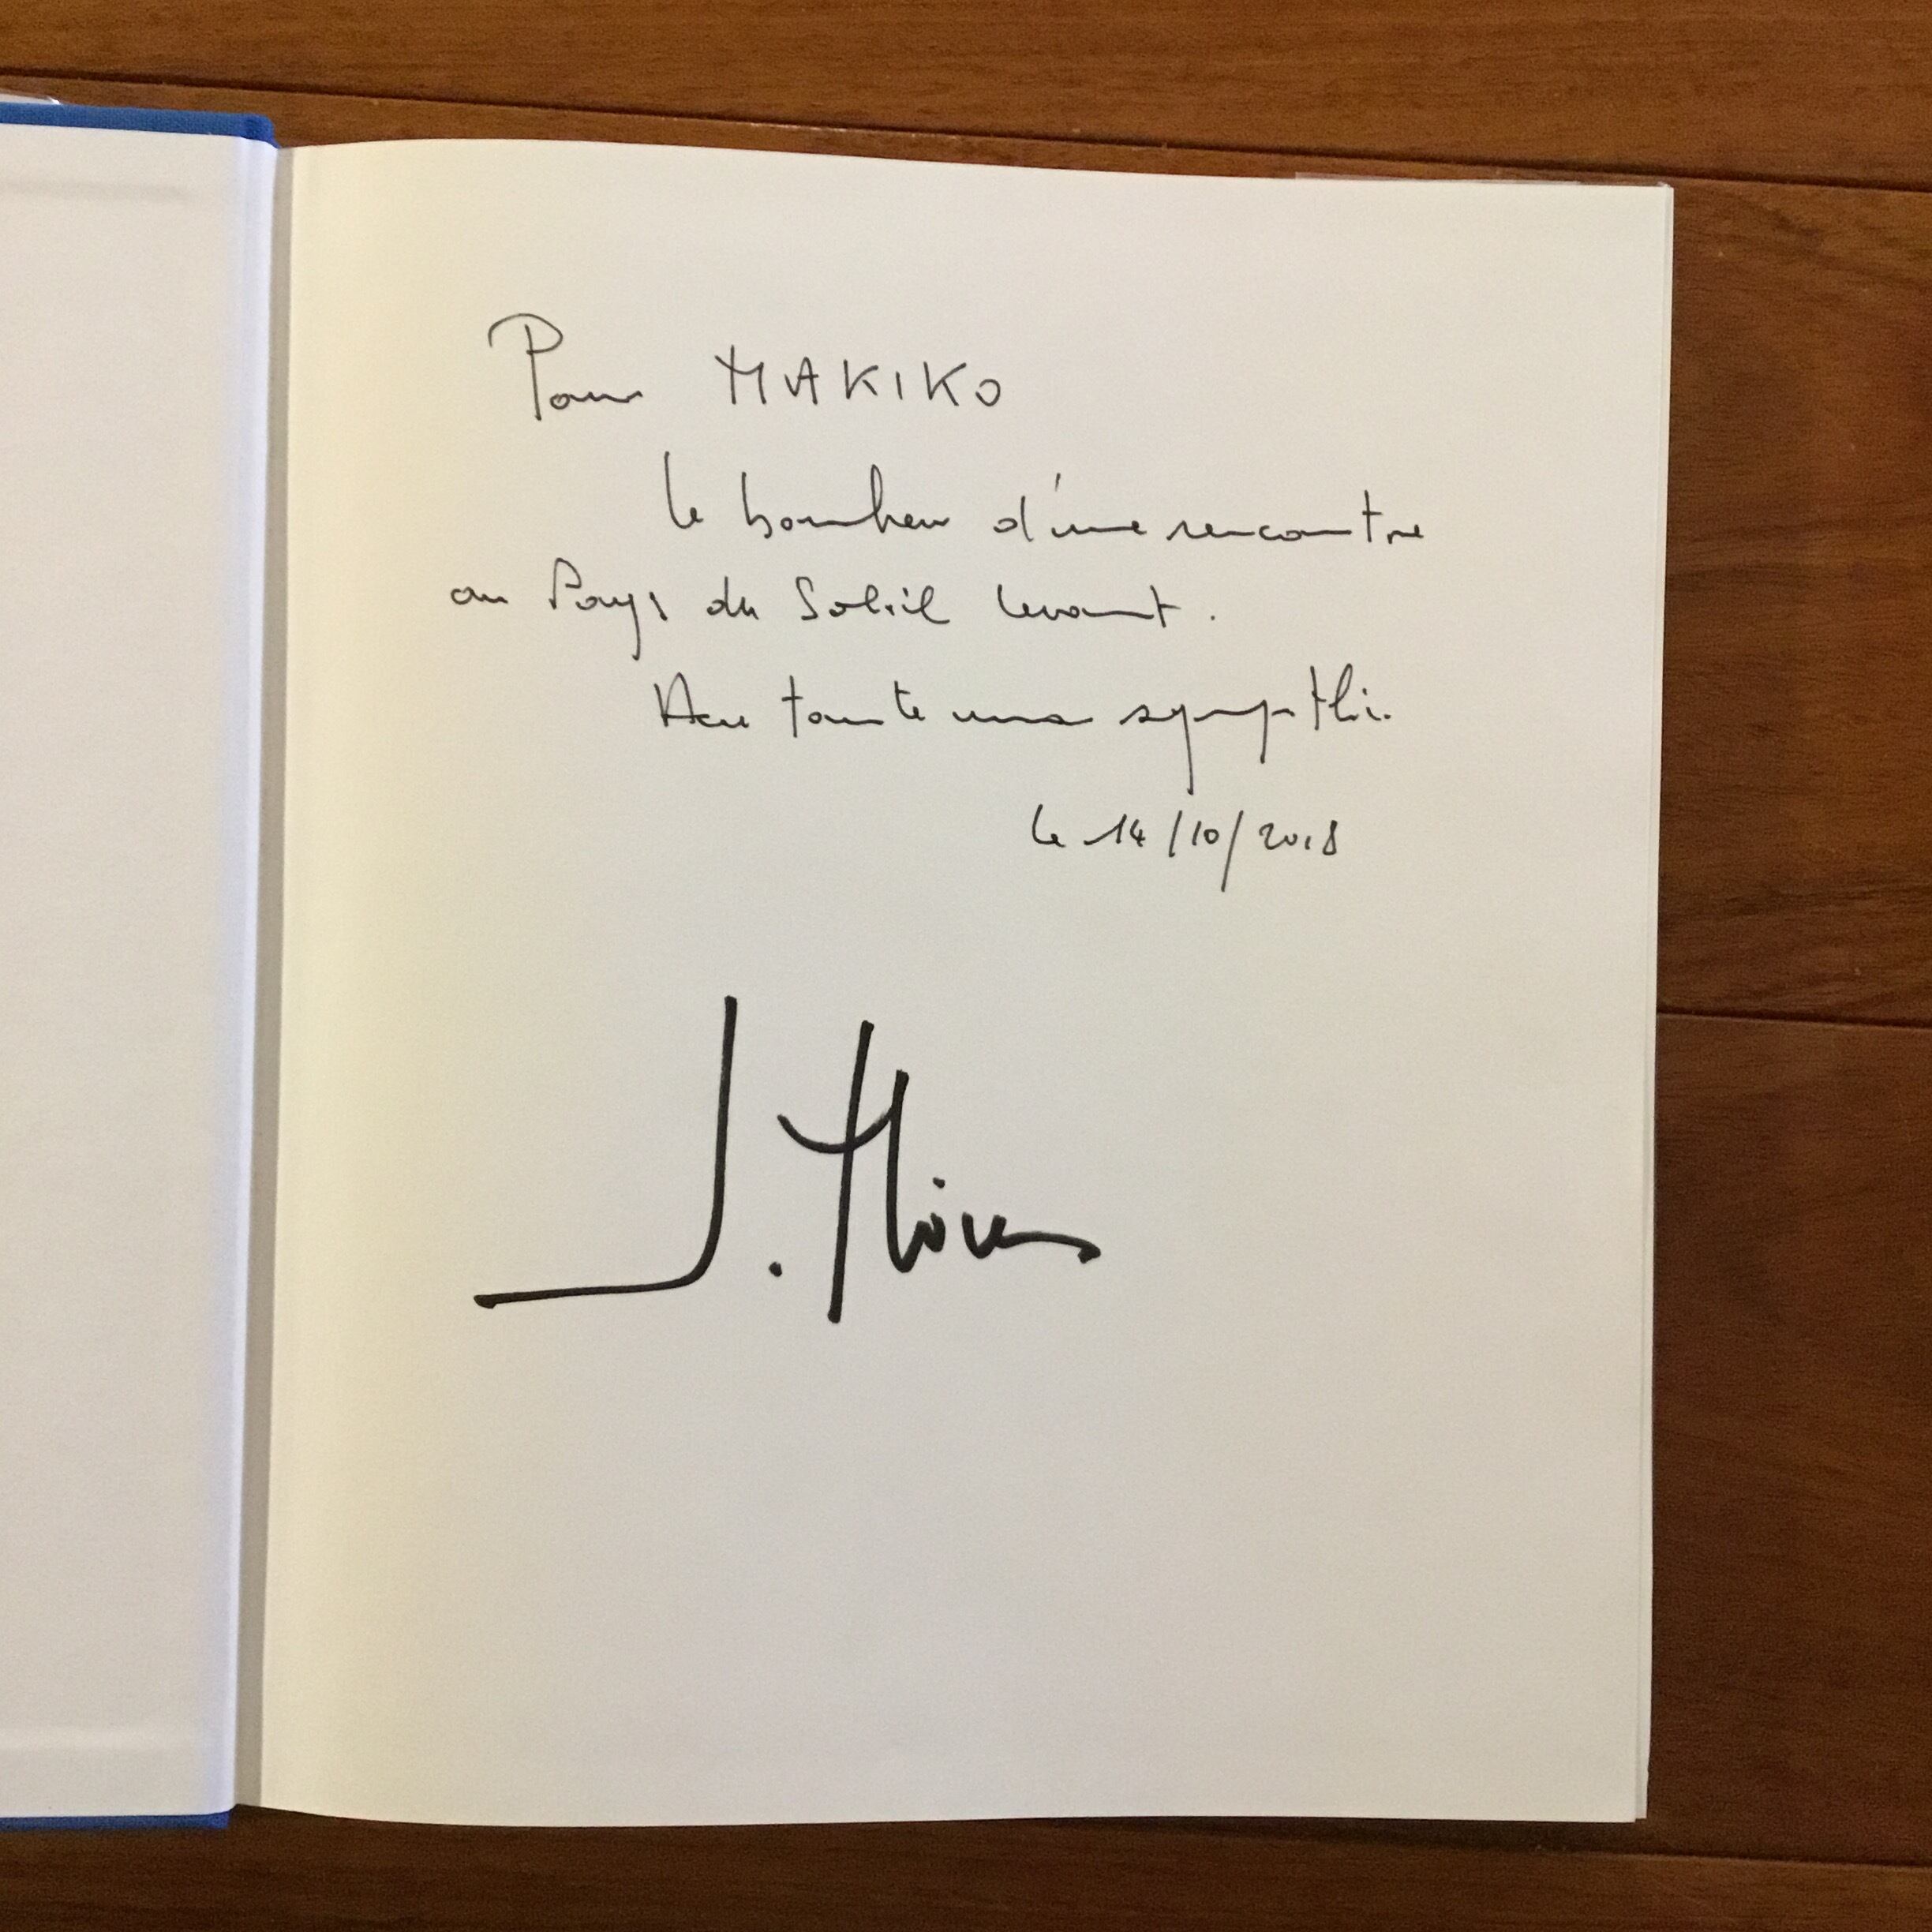 Pour MAKIKO
le bonheur d'une rencontre
au Pays du Soleil levant.
Avec toute ma sympathie.
le 14/10/2018
J.